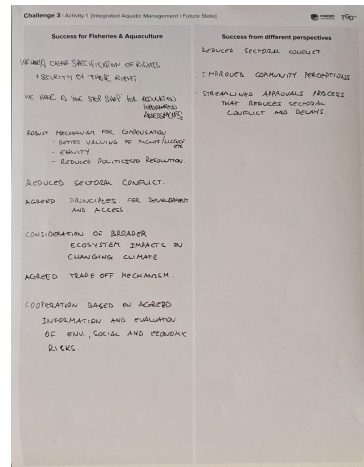 Challenge 3: Activity 1 [Integrated Aquatic Management | Future State]
Success for Fisheries & Aquaculture
WE HAVE CLEAR SPECIFICATION OF RIGHTS
+ SECURITY OF THOSE RIGHTS.
WE HAVE A ONE STOP SHOP FOR REGULATION
INFORMATION
ASSESSMENTS
ROBUST MECHANISM FOR COMPENSATION
- BETTER VALUING OF RIGHTS/LICENCE
ETC
- EQUITY.
- REDUCED POLITICISED RESOLUTION.
REDUCED SECTORAL CONFLICT.
AGREED PRINCIPLES FOR DEVELOPMENT
AND ACCESS.
CONSIDERATION OF BROADER
ECOSYSTEM IMPACTS IN
CHANGING CLIMATE
AGREED TRADE OFF MECHANISM.
COOPERATION BASED ON AGREED
INFORMATION AND EVALUATION
OF ENV., SOCIAL AND ECONOMIC
RISKS.
Success from different perspectives
REDUCED SECTORAL CONFLICT.
- IMPROVED COMMUNITY PERCEPTIONS
- STREAMLINED APPROVALS PROCESS
THAT REDUCES SECTORAL
CONFLICT AND DELAYS.